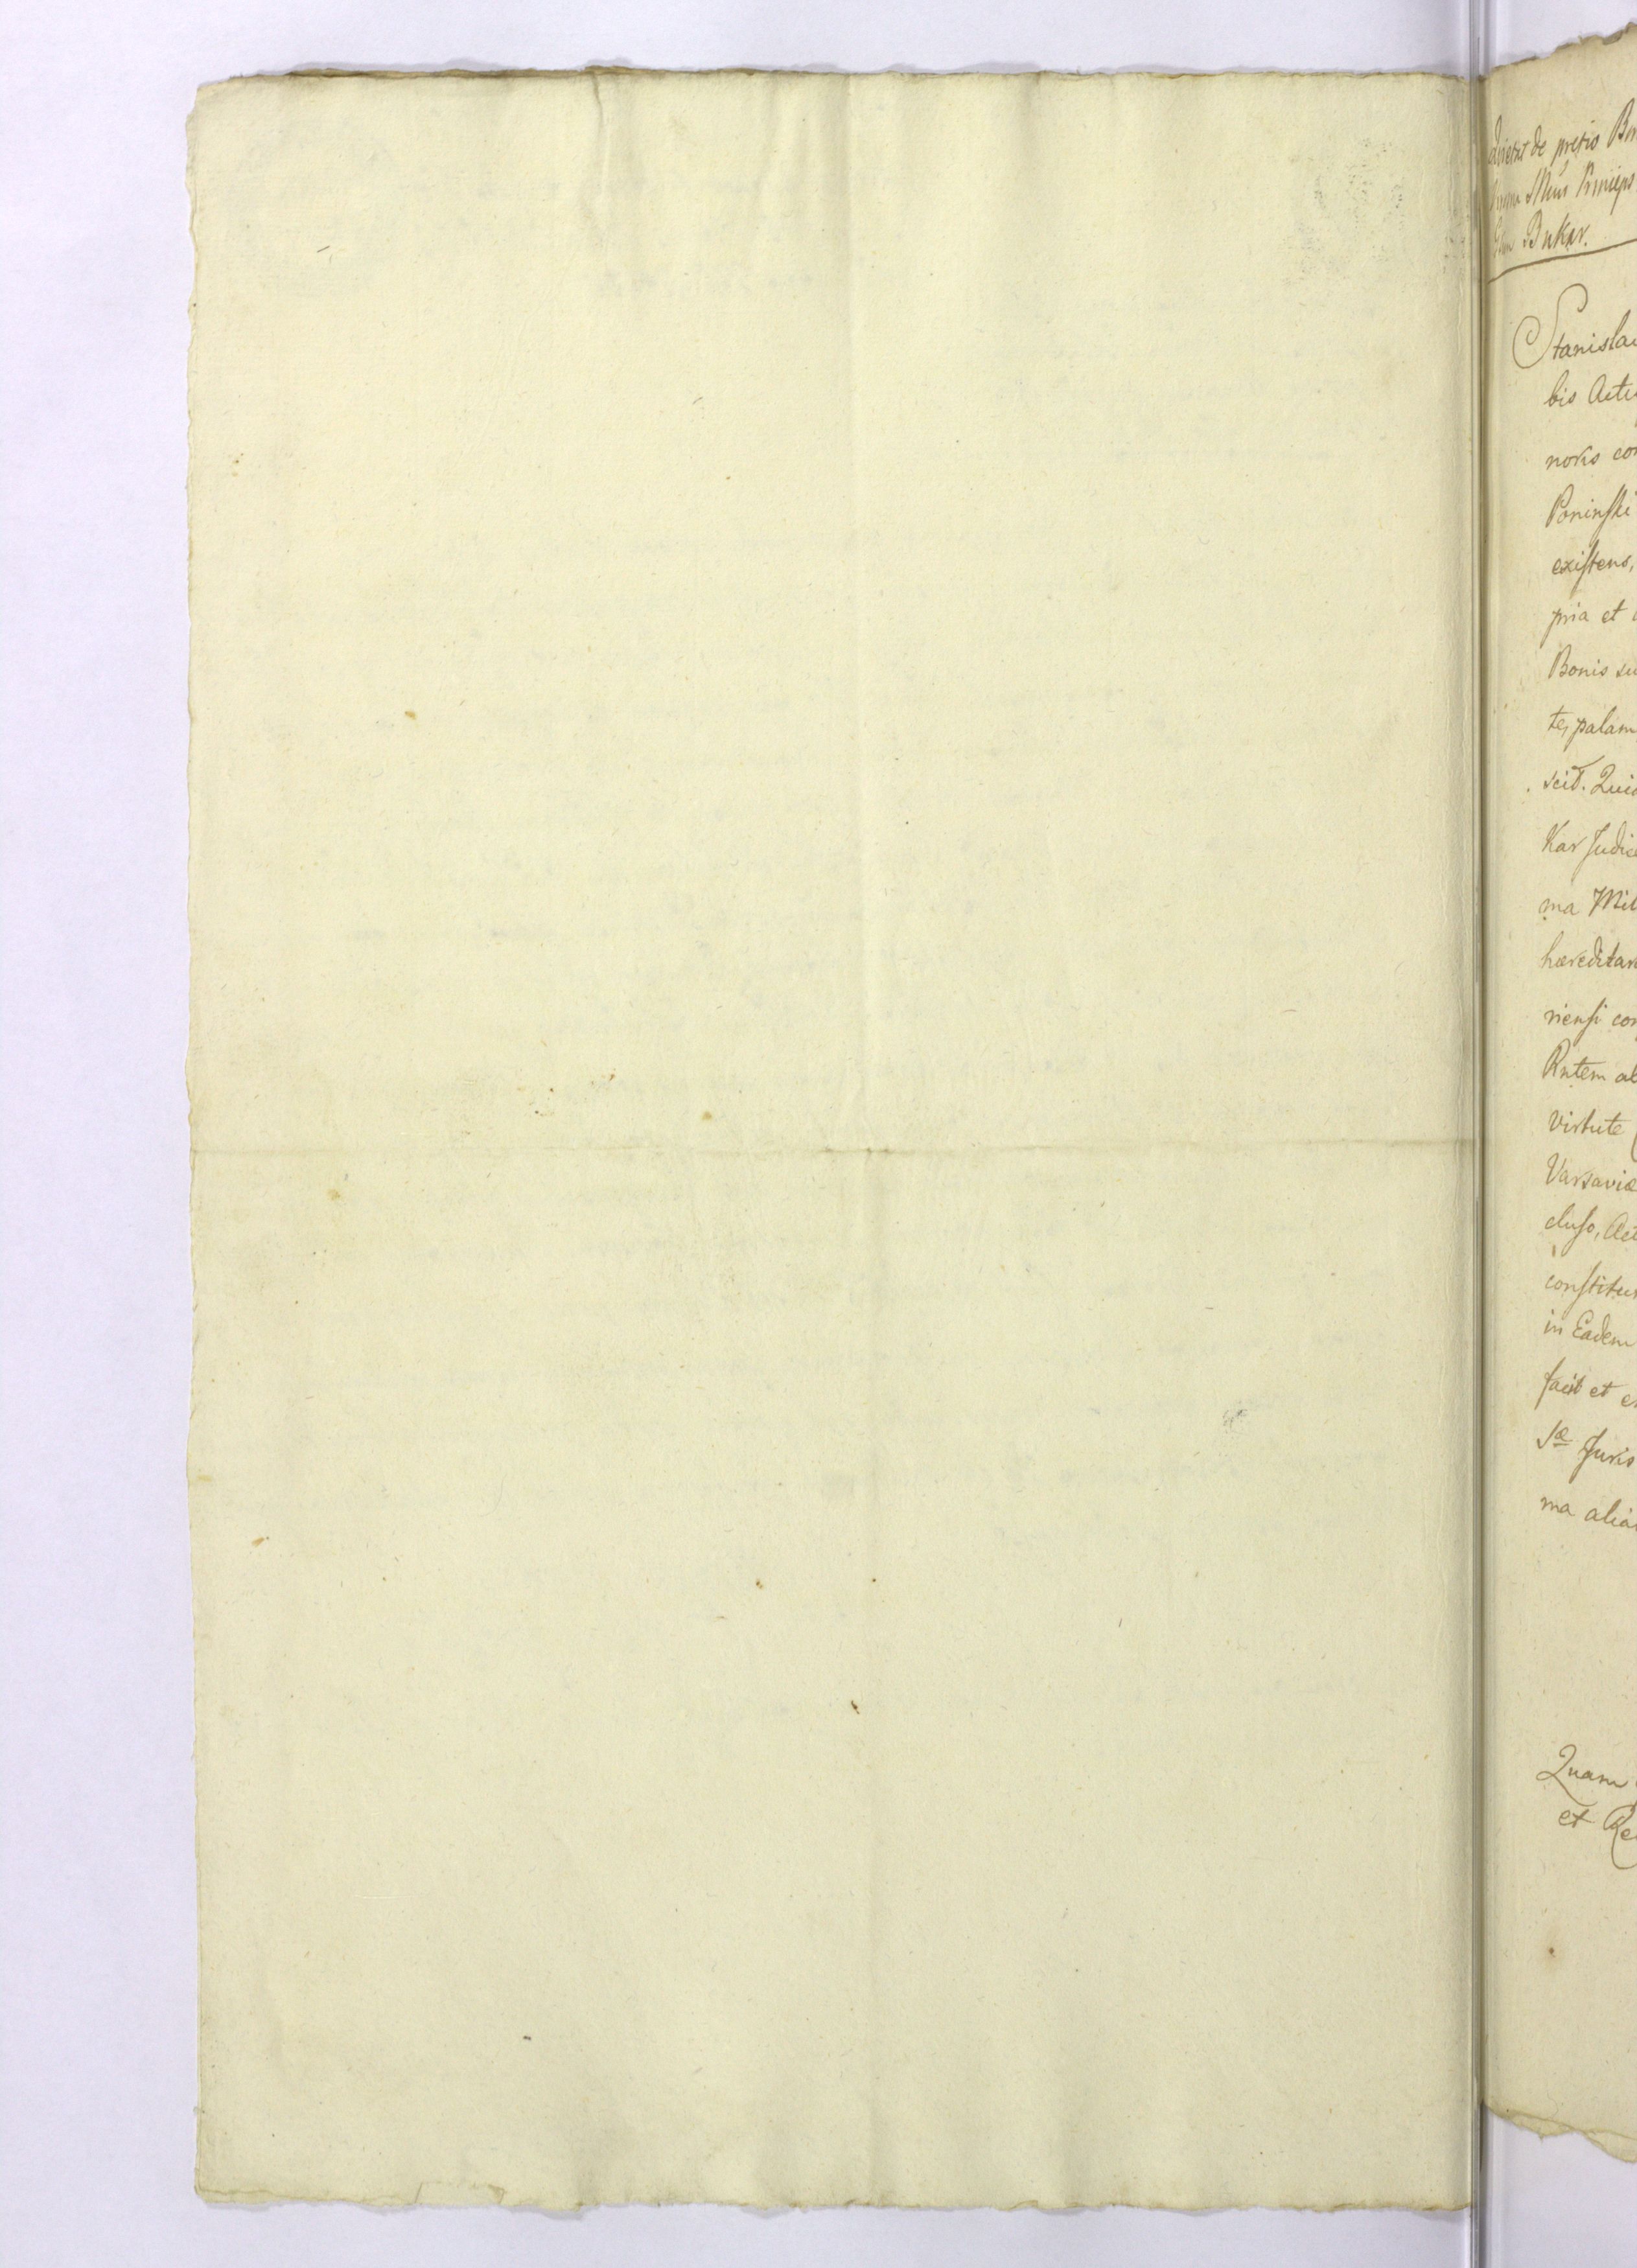 de pretio
Princeps
Bukar.
Stanisla
bis Acti
noris con
Poninski
existens,
pria et
Bonis su
te, palam
scit. Quia
Kar Judice
ma Mil
hæreditari
niensi con
Rntem ab
virtute
Varsaviæ
cluso, Act
constitut
in Eadem
facit et
sæ Juris
ma alia
Quam
et Re